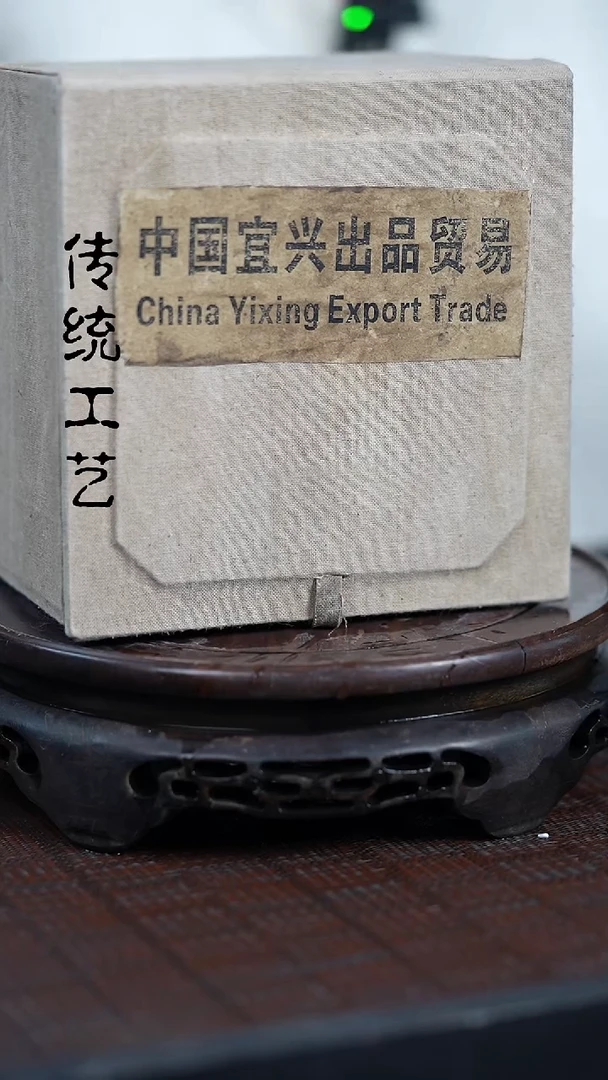 中国宜兴出品贸易
China Yixing Export Trade
传统工艺